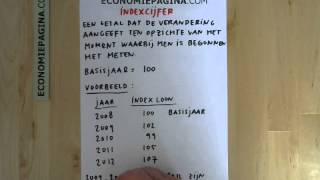 ECONOMIEPAGINA.COM
INDEXCIJFER
EEN GETAL DAT DE VERANDERING
AANGEEFT TEN OPZICHTE VAN HET
MOMENT WAARBIJ MEN IS BEGONNEN
MET METEN.
BASISJAAR = 100
VOORBEELD:
JAAR INDEX LOON
2008 100 BASISJAAR
2009 102
2010 99
2011 105
2012 107
ZIJN
ECONOMIEPAGINA.COM